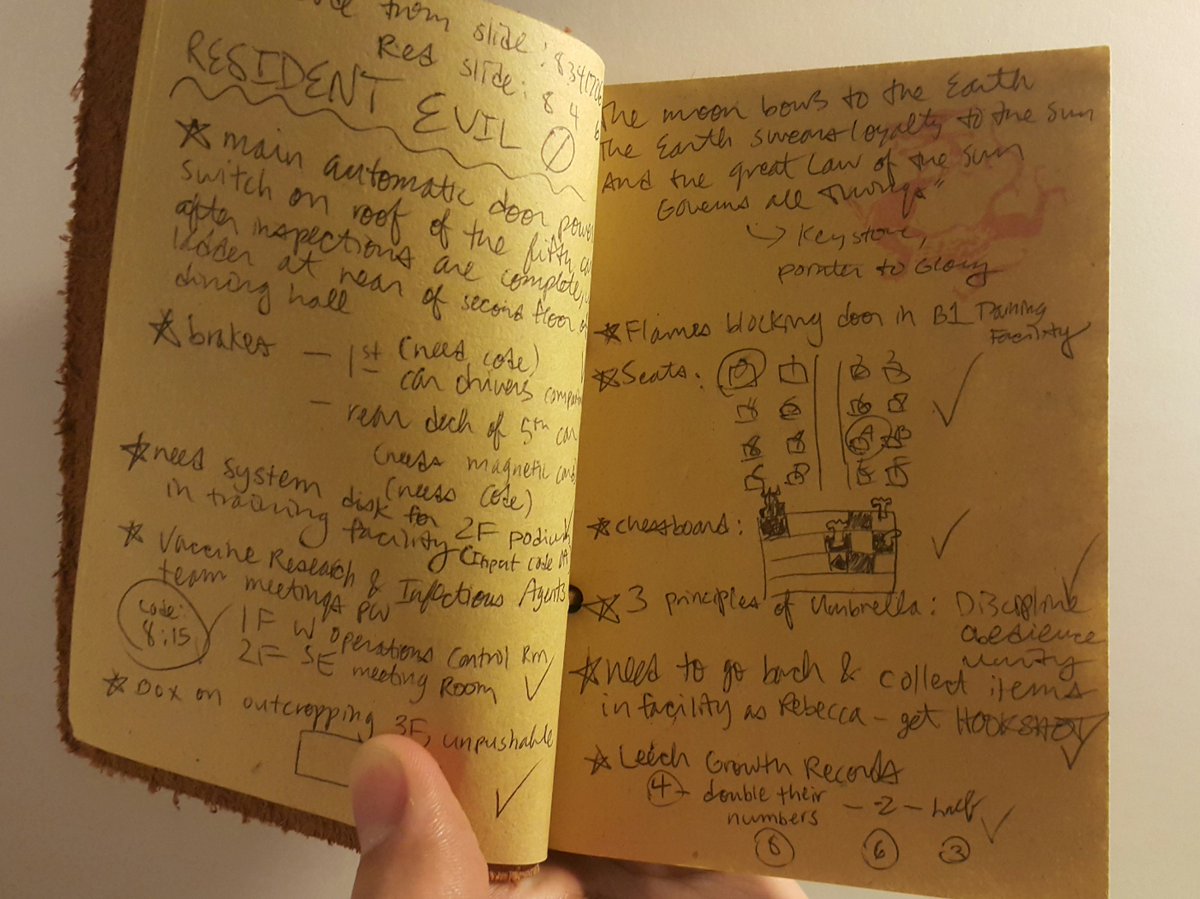 from slide: 834
Red slide: 8 4 6
RESIDENT EVIL 0
main automatic door power
switch on roof of the fifth
after inspections are complete,
ladder at rear of second floor
dining hall
brakes — 1st (need code)
car drivers
— rear deck of 5th car
(needs magnetic
(needs code)
need system disk for 2F podium
in training facility (Input code
Vaccine Research & Infectious Agents
team meetings PW
code:
8:15
1F W Operations Control Rm
2F SE meeting Room
Box on outcropping 3F, unpushable
The moon bows to the Earth
The Earth swears loyalty to the sun
And the great Law of the Sun
Governs all Things"
↳ Keystone,
pointer to Glory
Flames blocking door in B1 Training
Facility
Seats:
chessboard:
3 principles of Umbrella: Discipline
obedience
unity
need to go back & collect items
in facility as Rebecca - get HOOKSHOT
Leech Growth Records
4 - double their - -2 - half
numbers
8 6 3